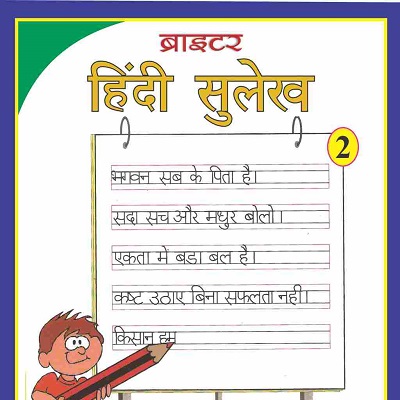 ब्राइटर
हिंदी सुलेख
2
भगवन सब के पिता है।
सदा सच और मधुर बोलो।
एकता में बडा बल है।
कष्ट उठाए बिना सफलता नही।
किसान हम